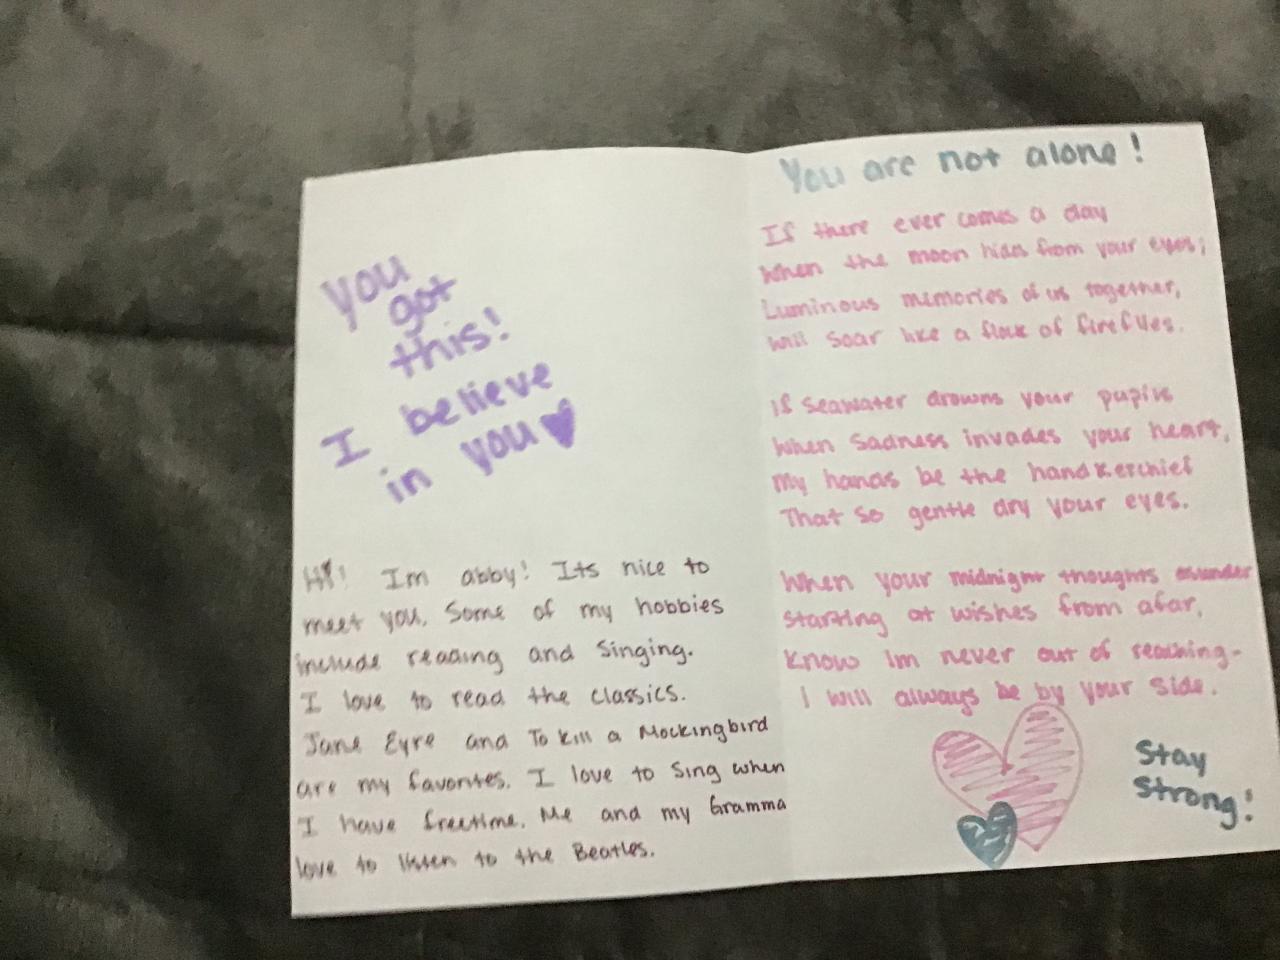 You
got
this!
I believe
in you
Hi! Im abby! Its nice to
meet you. Some of my hobbies
include reading and singing.
I love to read the classics.
Jane Eyre and To kill a Mockingbird
are my favorites. I love to sing when
I have freetime. Me and my Gramma
love to listen to the Beatles.
You are not alone!
If there ever comes a day
When the moon hides from your eyes;
Luminous memories of us together,
Will soar like a flock of fireflies.
If seawater drowns your pupils
When sadness invades your heart,
My hands be the handkerchief
That so gentle dry your eyes.
When your midnight thoughts asunder
Starting at wishes from afar,
Know Im never out of reaching-
I will always be by your side.
Stay
Strong!